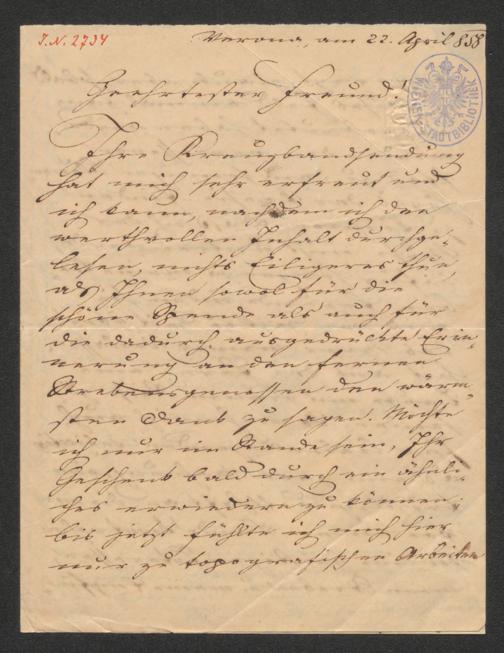 J.N. 2734
Verona, am 22. April 858
WIENER STADTBIBLIOTHEK
Geehrtester Freund!
Ihre Kreuzbandsendung
hat mich sehr erfreut und
ich kann, nachdem ich den
werthvollen Inhalt durchge-
lesen, nichts Eiligeres thun,
als Ihnen sowol für die
schöne Spende als auch für
die dadurch ausgedrückte Erin-
nerung an den fernen
Strebensgenossen den wärm-
sten Dank zu sagen. Möchte
ich nur im Stande sein, Ihr
Geschenk bald durch ein ähnli-
ches erwiedern zu können;
bis jetzt fühlte ich mich hier
nur zu topografischen Arbeiten